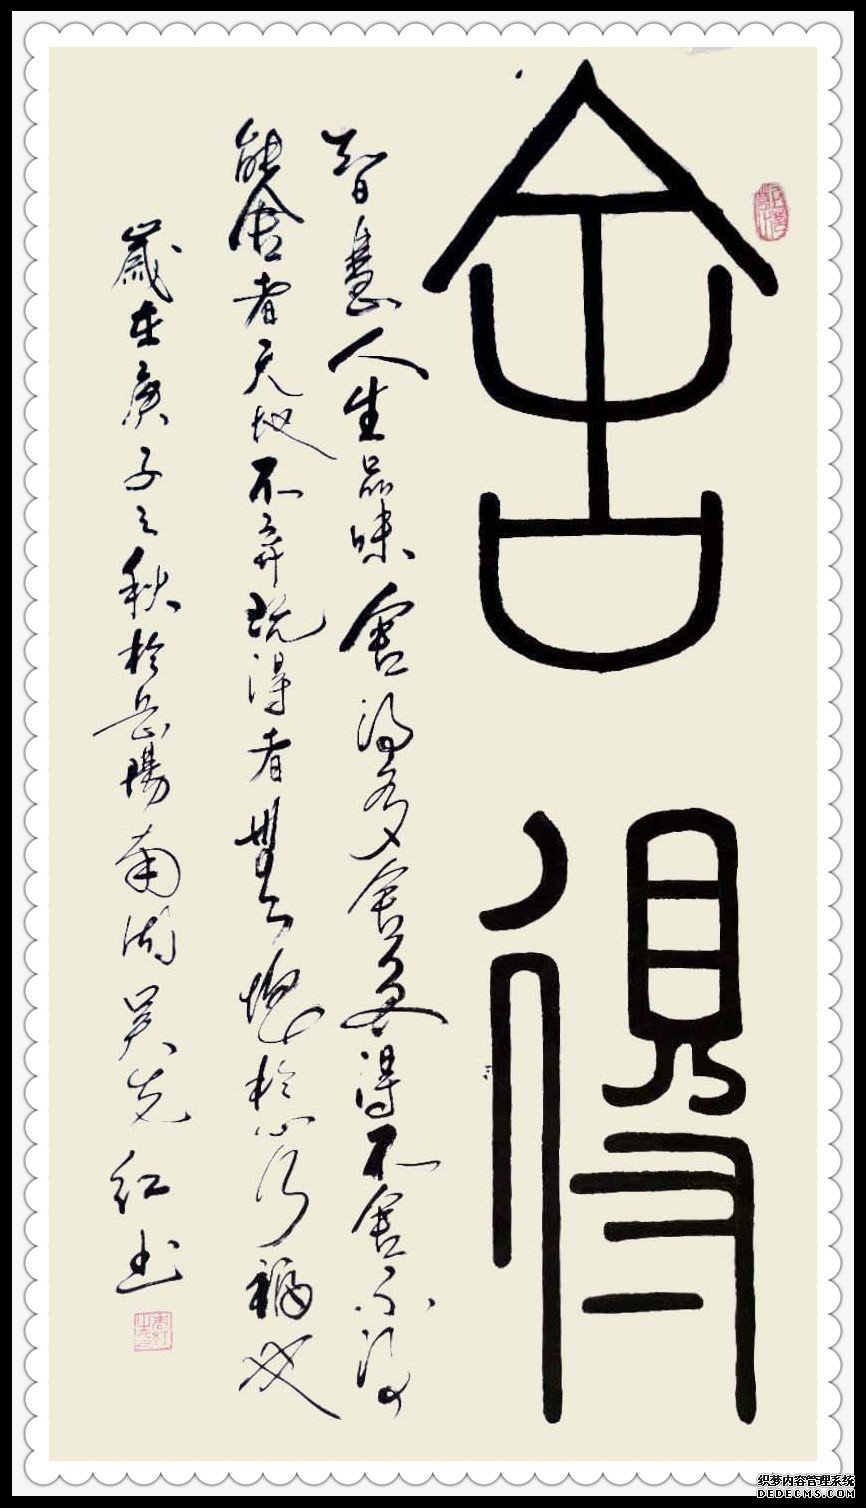 舍得
智慧人生品味舍得多舍多得不舍不得
能舍者天地不弃既得者無愧於心乃福也
歲在庚子之秋於岳陽南湖吴先红书
织梦内容管理系统
DEDECMS.COM